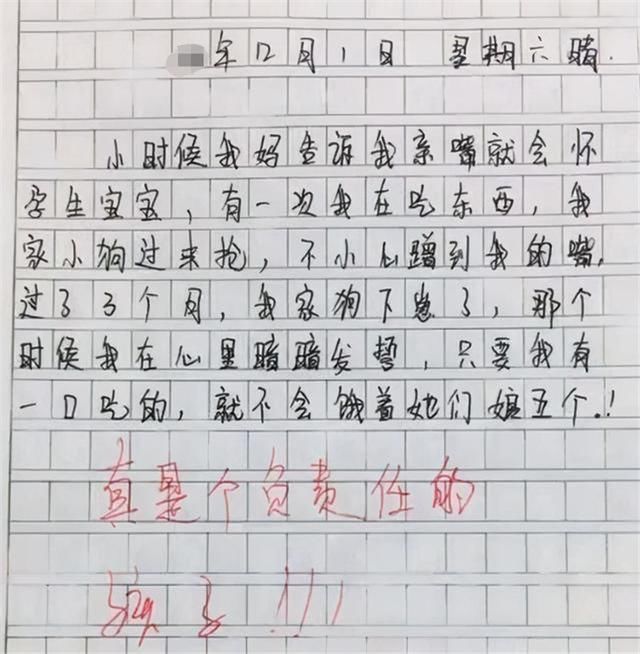 年12月1日 星期六晴.
小时候我妈告诉我亲嘴就会怀
孕生宝宝，有一次我在吃东西，我
家小狗过来抢，不小心蹭到我的嘴.
过了3个月，我家狗下崽了，那个
时候我在心里暗暗发誓，只要我有
一口吃的，就不会饿着她们娘五个.！
真是个负责任的
孩子!!!